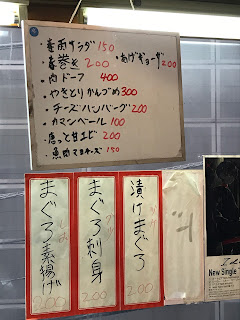 ・春雨サラダ 150
・春巻き 200 ・あげギョーザ 200
・肉ドーフ 400
・やきとりかんづめ 300
・チーズハンバーグ 200
・カマンベール 100
・魚肉マヨチーズ 150
漬けまぐろ
200
まぐろ刺身
200
まぐろ素揚げ
200
New Single